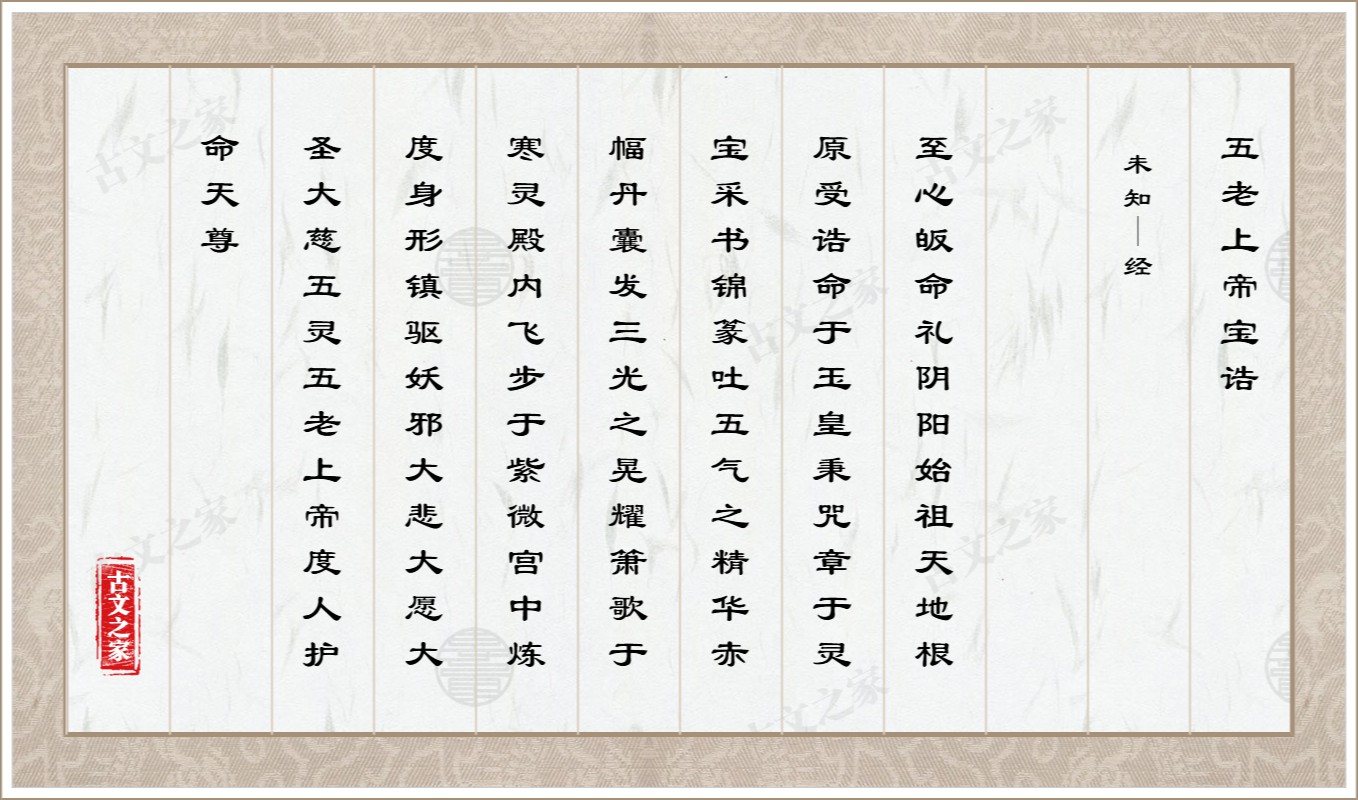 五老上帝宝诰
未知—经
至心皈命礼阴阳始祖天地根
原受诰命于玉皇秉咒章于灵
宝采书锦篆吐五气之精华赤
幅丹囊发三光之晃耀箫歌于
寒灵殿内飞步于紫微宫中炼
度身形镇驱妖邪大悲大愿大
圣大慈五灵五老上帝度人护
命天尊
古文之家
古文之家
古文之家
古文之家
古文之家
古文之家
古文之家